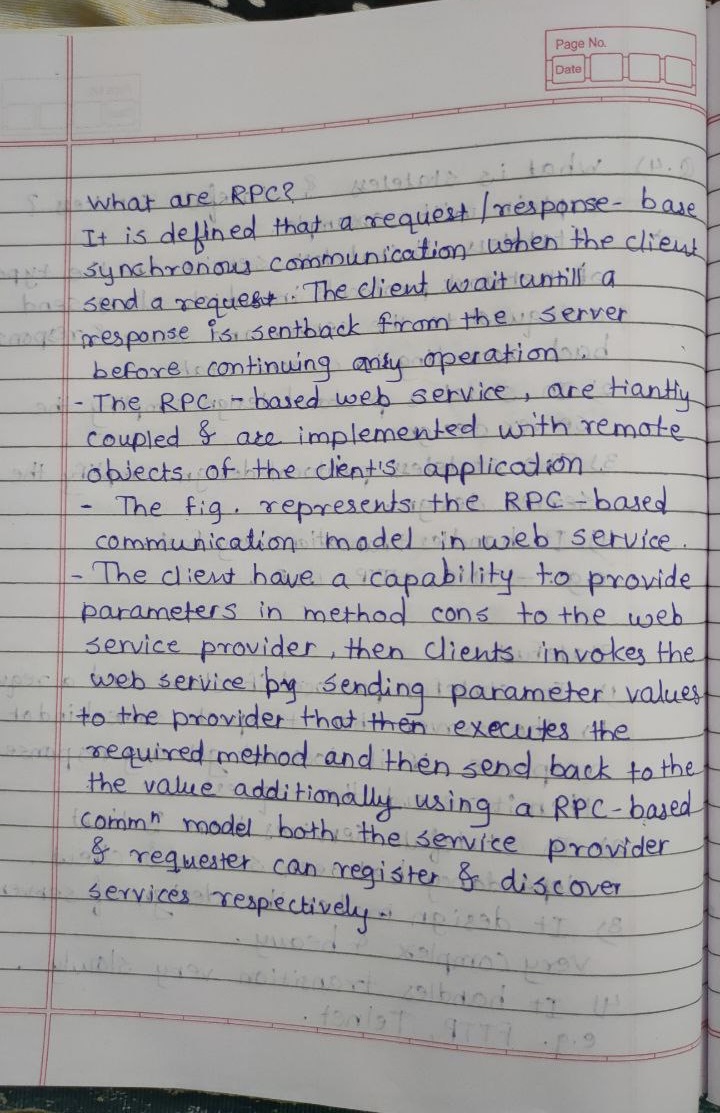 Page No.
Date
What are RPC?
It is defined that a request/response- base
synchronous communication when the client
send a request. The client wait untill a
response is sentback from the server
before continuing any operation.
- The RPC - based web service, are tiantly
coupled & are implemented with remote
objects of the client's application
- The fig. represents the RPC - based
communication model in web service.
- The client have a capability to provide
parameters in method cons to the web
service provider, then clients invokes the
web service by sending parameter values
to the provider that then executes the
required method and then send back to the
the value additionally using a RPC-based
commⁿ model both the service provider
& requester can register & discover
services respectively.